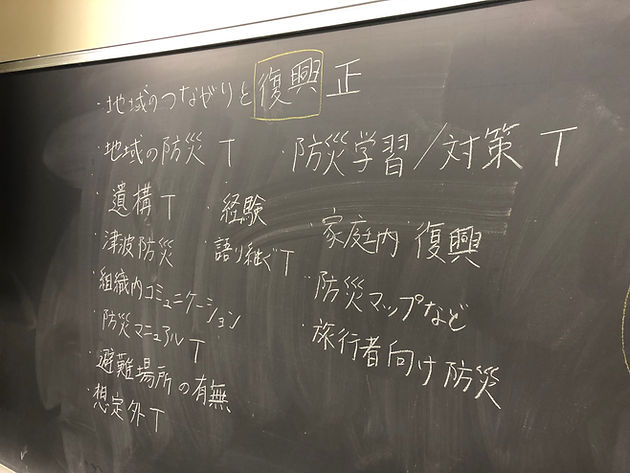 ・地域のつながりと復興 正
・地域の防災 T ・防災学習/対策 T
・遺構 T ・経験
・津波防災 ・語り継ぐ T
・家庭内 復興
・組織内コミュニケーション
・防災マップなど
・防災マニュアル T
・旅行者向け防災
・避難場所の有無
・想定外 T